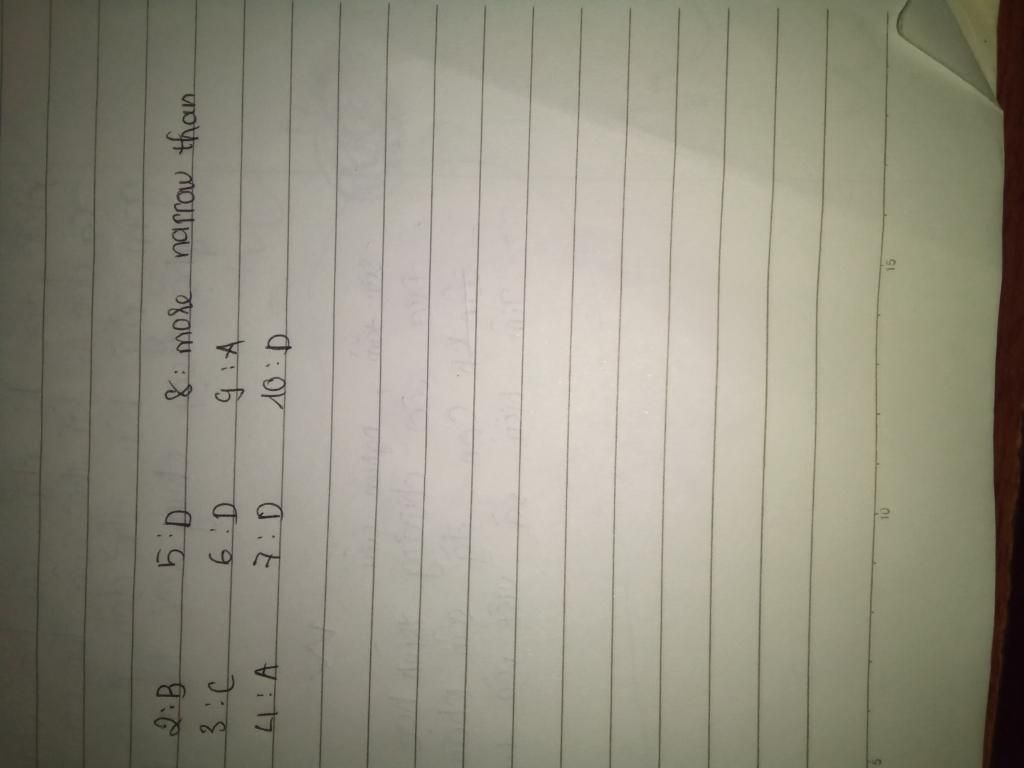 2:B 5:D 8: more narrow than
3:C 6:D 9:A
4:A 7:D 10:D
5 10 15